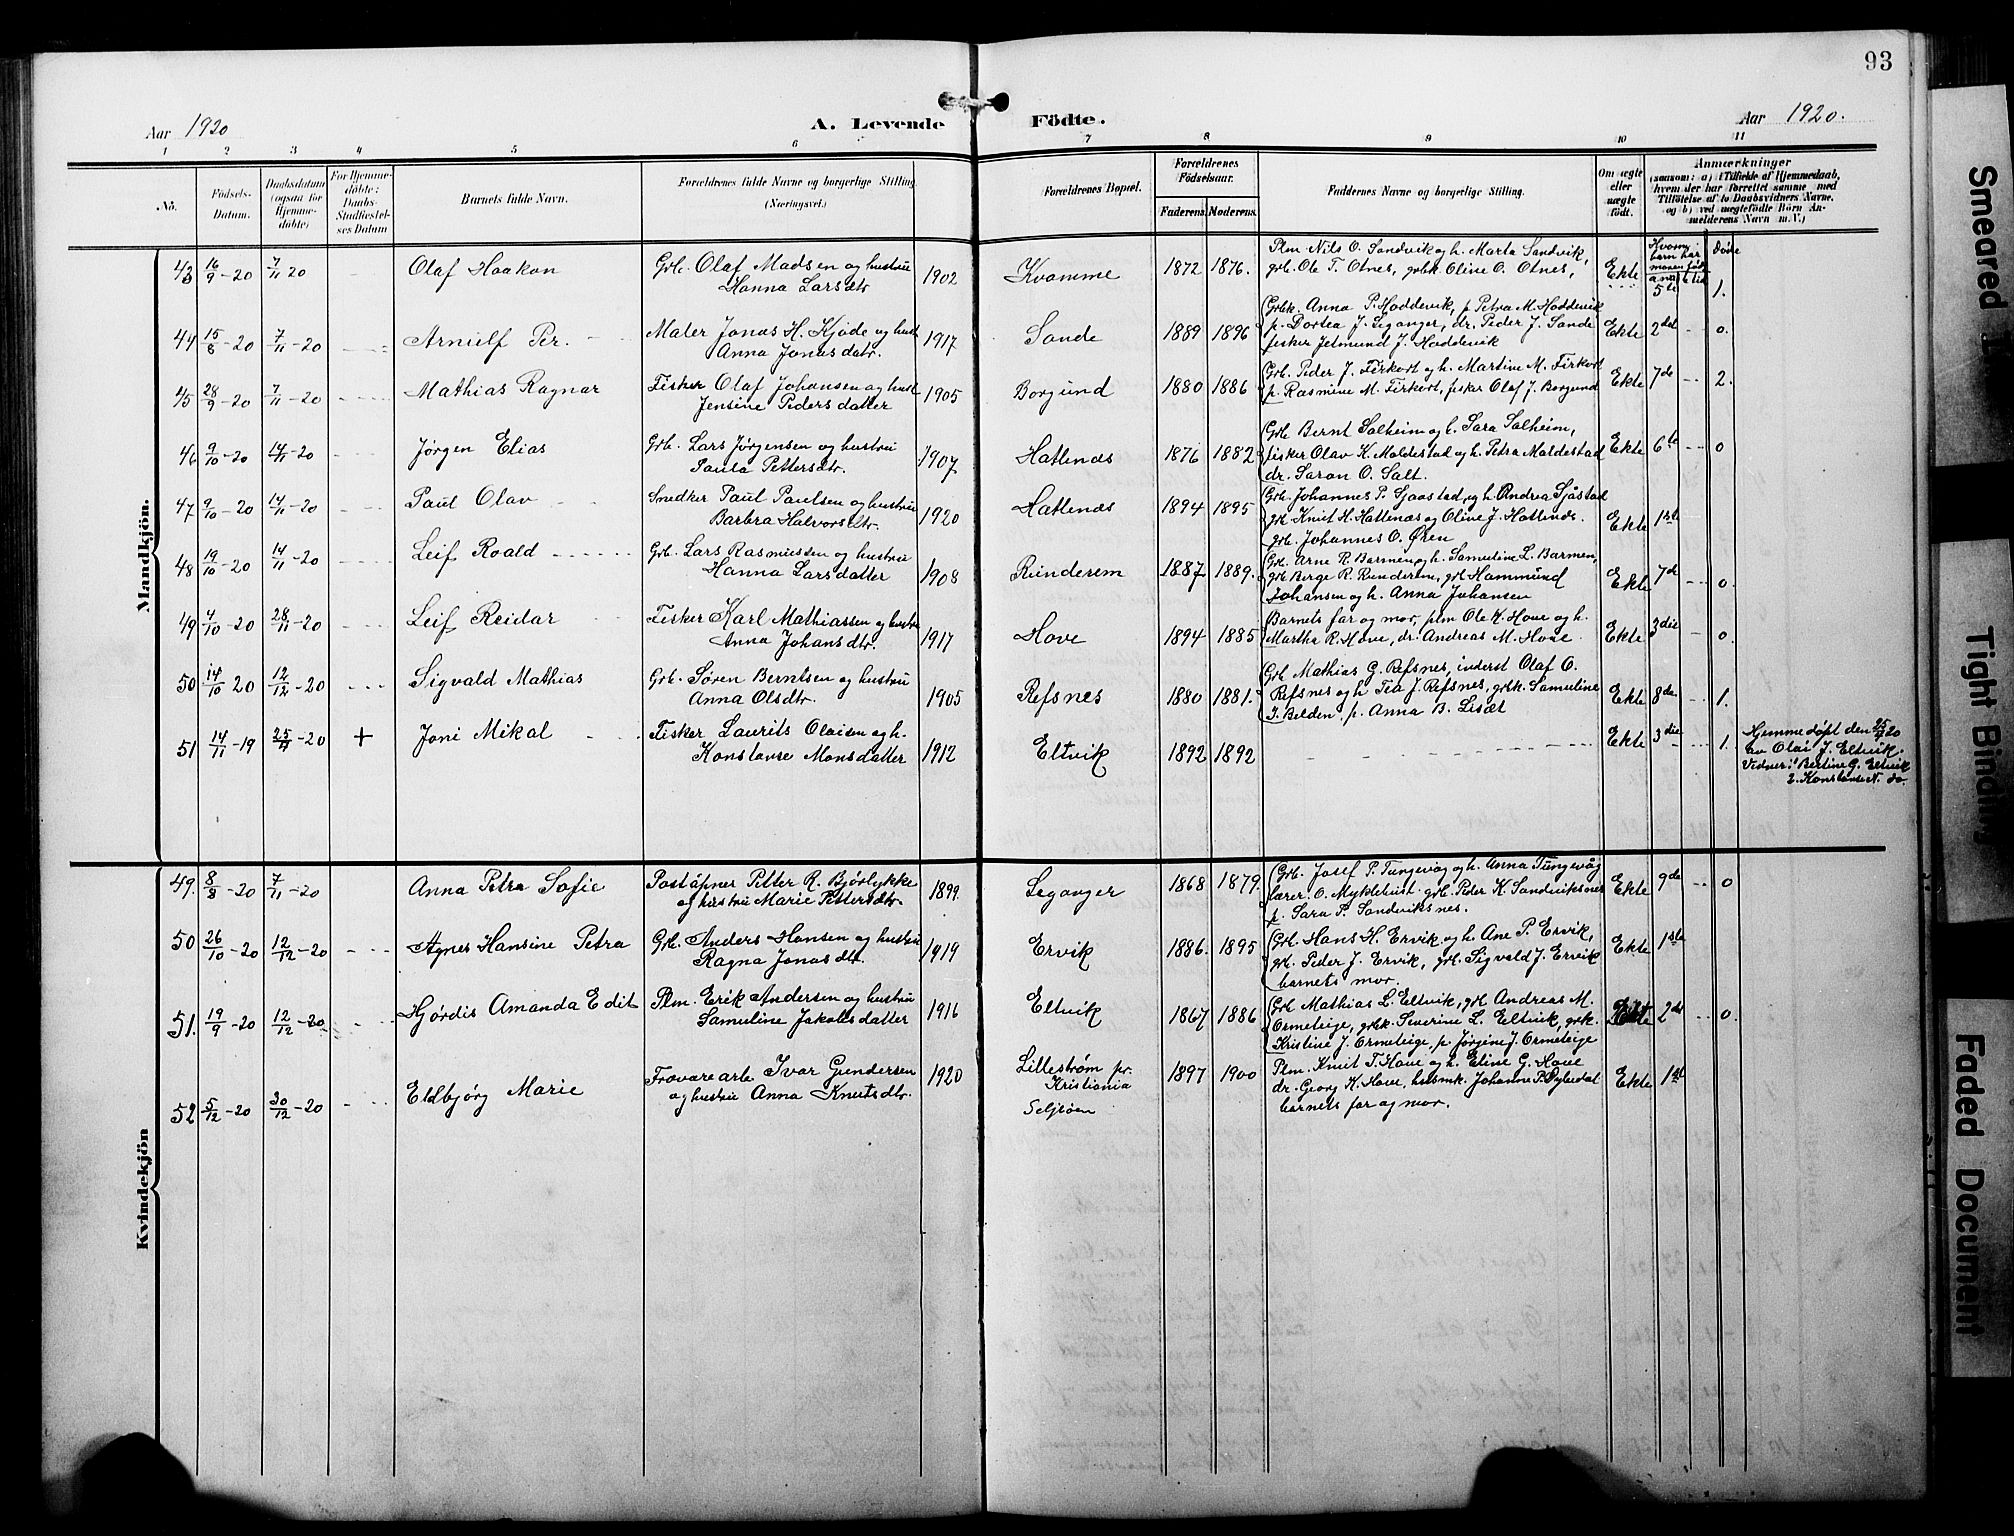 93
Aar 1920
A. Levende
Födte.
Aar 1920.
1 2 3 4 5 6 7 8 9 10 11
No.
Födsels-
Datum.
Daabsdatum
(ogsaa for
Hjemme-
döbte)
For Hjemme-
döbte:
Daabs-
Stadfæstel-
ses Datum
Barnets fulde Navn.
Forældrenes fulde Navne og borgerlige Stilling
(Næringsvei.)
Forældrenes Bopæl.
Forældrenes
Födselsaar.
Faderens. Moderens.
Faddernes Navne og borgerlige Stilling.
Om ægte
eller
uægte
født.
Anmærkninger
(saasom: a) i Tilfælde af Hjemmedaab,
hvem der har forrettet samme med
Tilföielse af to Daabsvidners Navne,
og b) ved uægtefödte Börn An-
melderens Navn m. V.)
Mandkjön.
43 16/9-20 7/11 20 Olaf Haakon Grb. Olaf Madsen og hustru
Hanna Larsdtr 1902 Kvamme 1872 1876. Plm. Nils O. Sandvik og h. Marta Sandvik,
grb. Ole T. Otnes, grbk Oline O. Otnes, Ekte 5te 1.
44 15/8-20 7/11-20 Arniulf Per. Maler Jonas H. Kjøde og hust
Anna Jonasdatr. 1917 Sande 1889 1896 Grbk. Anna P. Hoddevik, p. Petra M. Hoddevik
p. Dortea J. Leganger, dr. Peder J. Sande
fisker Jetmund J. Hoddevik Ekte 2det 0.
45 28/9-20 7/11-20 Mathias Ragnar Fisker Olaf Johansen og hust
Jensine Pedersdatter 1905 Borgund 1880 1886 Grb. Peder J. Firkort og h. Martine M. Firkort
p. Rasmine M. Firkort, fisker Olaf J. Borgund Ekte 7de 2.
46 9/10-20 14/11-20 Jørgen Elias Grb. Lars Jørgensen og hustru
Paula Pettersdtr. 1907 Hatlenes 1876 1882 Grb Bernt Salheim og h. Sara Salheim,
fisker Olav K. Maldestad og h. Petra Maldestad
dr. Saron O. Salt. Ekte 6te 0
47 9/10-20 14/11-20 Paul Olav Snedker Paul Paulsen og hustru
Barbra Halvorsdtr. 1920 Hatlenes 1894 1895 Grb. Johannes P. Sjaastad og h. Andrea Sjåstad
grb Knut H. Hatlenæs og Oline J. Hatlenæs.
grb. Johannes O. Øren Ekte 1ste
48 19/10-20 14/11-20 Leif Roald Grb. Lars Rasmussen og hustru
Hanna Larsdatter 1908 Runderem 1887 1889. Grb. Arne R. Barmen og h. Samuline L. Barmen,
grb Berge R. Runderem, grb Hammund
Johansen og h. Anna Johansen Ekte 7de 0.
49 4/10-20 28/11-20 Leif Reidar Fisker Karl Mathiassen og hustru
Anna Johansdtr. 1917 Hove 1894 1885 Barnets far og mor, plm Ole K. Hove og h.
Martha R. Hove, dr. Andreas M. Hove. Ekte 3die 0.
50 14/10 20 12/12-20 Sigvald Mathias Grb. Søren Berntsen og hustru
Anna Olsdtr. 1905 Refsnes 1880 1881. Grb Mathias G. Refsnes, inderst Olaf O.
Refsnes og h Tea J. Refsnes, grbk. Samuline
J. Belden, p. Anna B. Lisæt Ekte 8de 1.
51 14/11-19 25/4-20 + Joni Mikal Fisker Laurits Olaisen og h.
Konstanse Monsdatter 1912 Eltvik 1892 1892 Ekte 3die 1. Hjemmedøpt den 25/4 20
av Olai J. Eltvik.
Vidner: 1 Bertine G. Eltvik
2. Konstanse N. do.
Kvindekjön
49. 8/8-20 7/11-20 Anna Petra Sofie Poståpner Petter R. Bjørlykke
og hustru Marie Pettersdtr. 1899. Leganger 1868 1879. Grb. Josef P. Tungevåg og h. Anna Tungevåg
lærer O. Myklebust grb. Peder K. Sandviksnes
p. Sara P. Sandviksnes. Ekte 9de 0
50 26/10-20 12/12-20 Agnes Hansine Petra Grb. Anders Hansen og hustru
Ragna Jonasdtr. 1919 Ervik 1886. 1895 Grb. Hans H. Ervik og h. Ane P. Ervik,
grb. Peder J. Ervik, grb. Sigvald J. Ervik
barnets mor. Ekte 1ste
51. 19/9-20 12/12-20 Hjørdis Amanda Edit Plm. Erik Andersen og hustru
Samuline Jakobsdatter 1916 Eltvik 1867 1886 Grb Mathias L. Eltvik, grb Andreas M.
Ormeteige, grbk. Severine L. Eltvik, grbk.
Kristine J. Ormeteige, p. Jørgine J. Ormeteige Ekte 2det 0.
52 5/12-20 30/12-20 Eldbjørg Marie Fravarearb. Ivar Gundersen
og hustru Anna Knutsdtr. 1920 Lillestrøm pr.
Kristiania
Seljeøen 1897 1900 Plm. Knut T. Hove og h. Eline G. Hove
dr. Georg K. Hove, husmk. Johanne P. Dyledal
barnets far og mor. Ekte 1ste
Smeared
Tight Binding
Faded Document